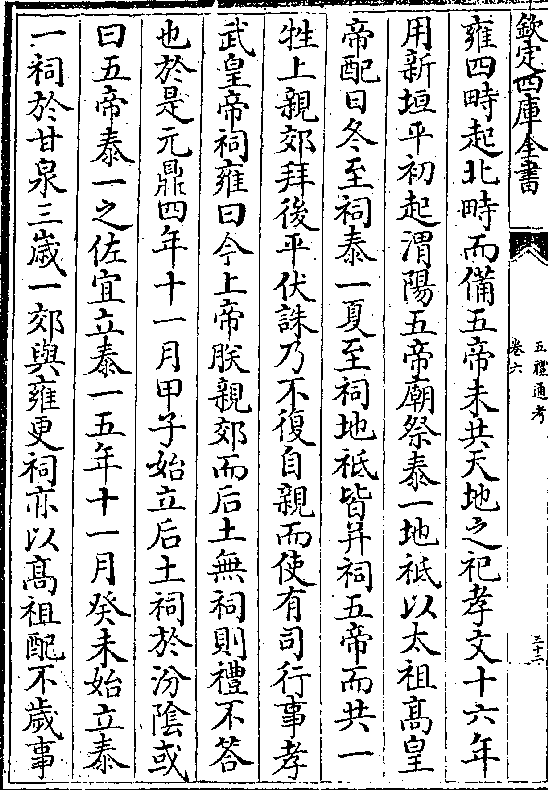 欽定四庫全書
五禮通考
卷六
三十二
雍四畤起北畤而備五帝未共天地之祀孝文十六年
用新垣平初起渭陽五帝廟祭泰一地祗以太祖髙皇
帝配日冬至祠泰一夏至祠地祗皆并祠五帝而共一
牲上親郊拜後平伏誅乃不復自親而使有司行事孝
武皇帝祠雍曰今上帝朕親郊而后土無祠則禮不答
也於是元鼎四年十一月甲子始立后土祠於汾陰或
曰五帝泰一之佐宜立泰一五年十一月癸未始立泰
一祠於甘泉三歲一郊與雍更祠亦以髙祖配不歲事